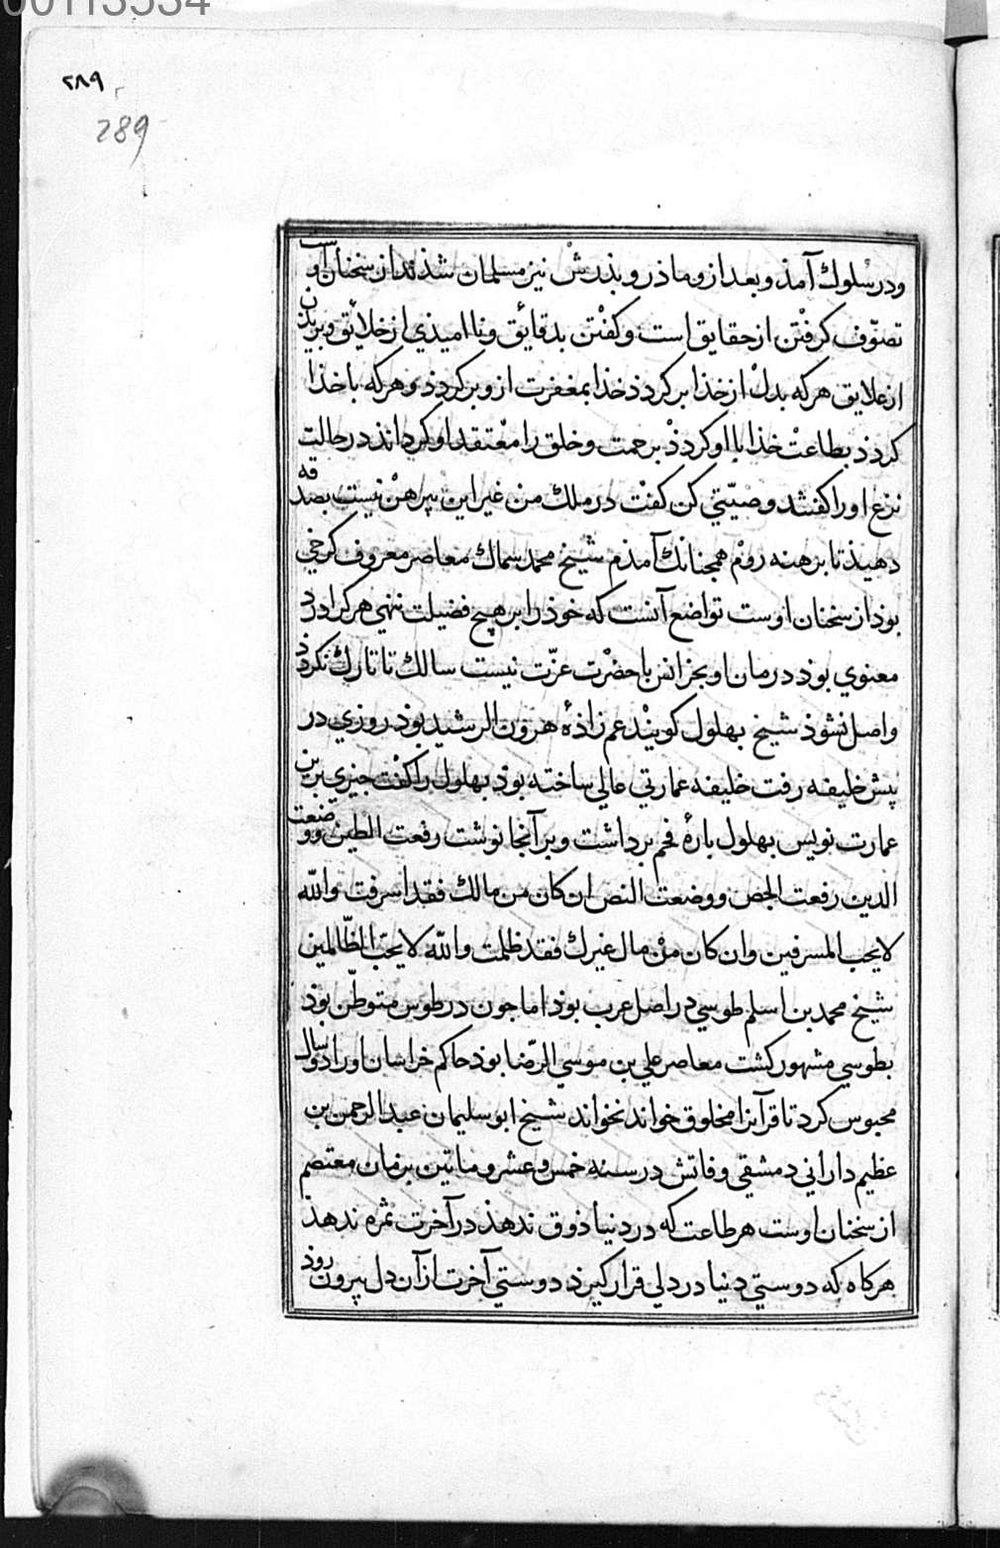 00113534
۲۸۹
289
ودر سلوك آمذ و بعد ازو ماذر و بذرش نيز مسلمان شذند از سخنان اوست
تصوّف كرفتن از حقايق است و كفتن بدقائق و نااميذي از خلائق و بريذن
از علايق هركه بدل از خذا بر كردد خذا بمغفرت ازو بر كردد و هركه با خذا
كردد بطاعت خذا با او كردد برحمت و خلق را معتقد او كرداند در حالت
نزع او را كفتند وصيّتي كن كفت در ملك من غير اين پيراهن نيست بصدقه
دهيذ تا برهنه روم همچنانك آمذم شيخ محمد سماك معاصر معروف كرخي
بوذ از سخنان اوست تواضع آنست كه خوذ را بر هيچ فضيلت ننهي هر كرا درد
معنوي بوذ درمان او بجز انس با حضرت عزّت نيست سالك تا تارك نكردد
واصل نشوذ شيخ بهلول كويند عم زاذۀ هرون الرشيد بوذ روزي در
پيش خليفه رفت خليفه عمارتي عالي ساخته بوذ بهلول را كفت چيزي برين
عمارت نويس بهلول پارۀ فحم برداشت و بر آنجا نوشت رفعت الطين و وضعت
الدين رفعت الجص و وضعت النص ان كان من مالك فقد اسرفت والله
لا يحب المسرفين وان كان من مال غيرك فقد ظلمت والله لا يحب الظالمين
شيخ محمد بن اسلم طوسي در اصل عرب بوذ اما چون در طوس متوطّن بوذ
بطوسي مشهور كشت معاصر علي بن موسي الرّضا بوذ حاكم خراسان او را دو سال
محبوس كرد تا قرآن را مخلوق خواند نخواند شيخ ابو سليمان عبد الرحمن بن
عظيم داراني دمشقي وفاتش در سنه خمس و عشر و ماتين بزمان معتصم
از سخنان اوست هر طاعت كه در دنيا ذوق ندهذ در آخرت ثمره ندهذ
هركاه كه دوستي دنيا در دلي قرار كيرذ دوستي آخرت از آن دل بيرون روذ